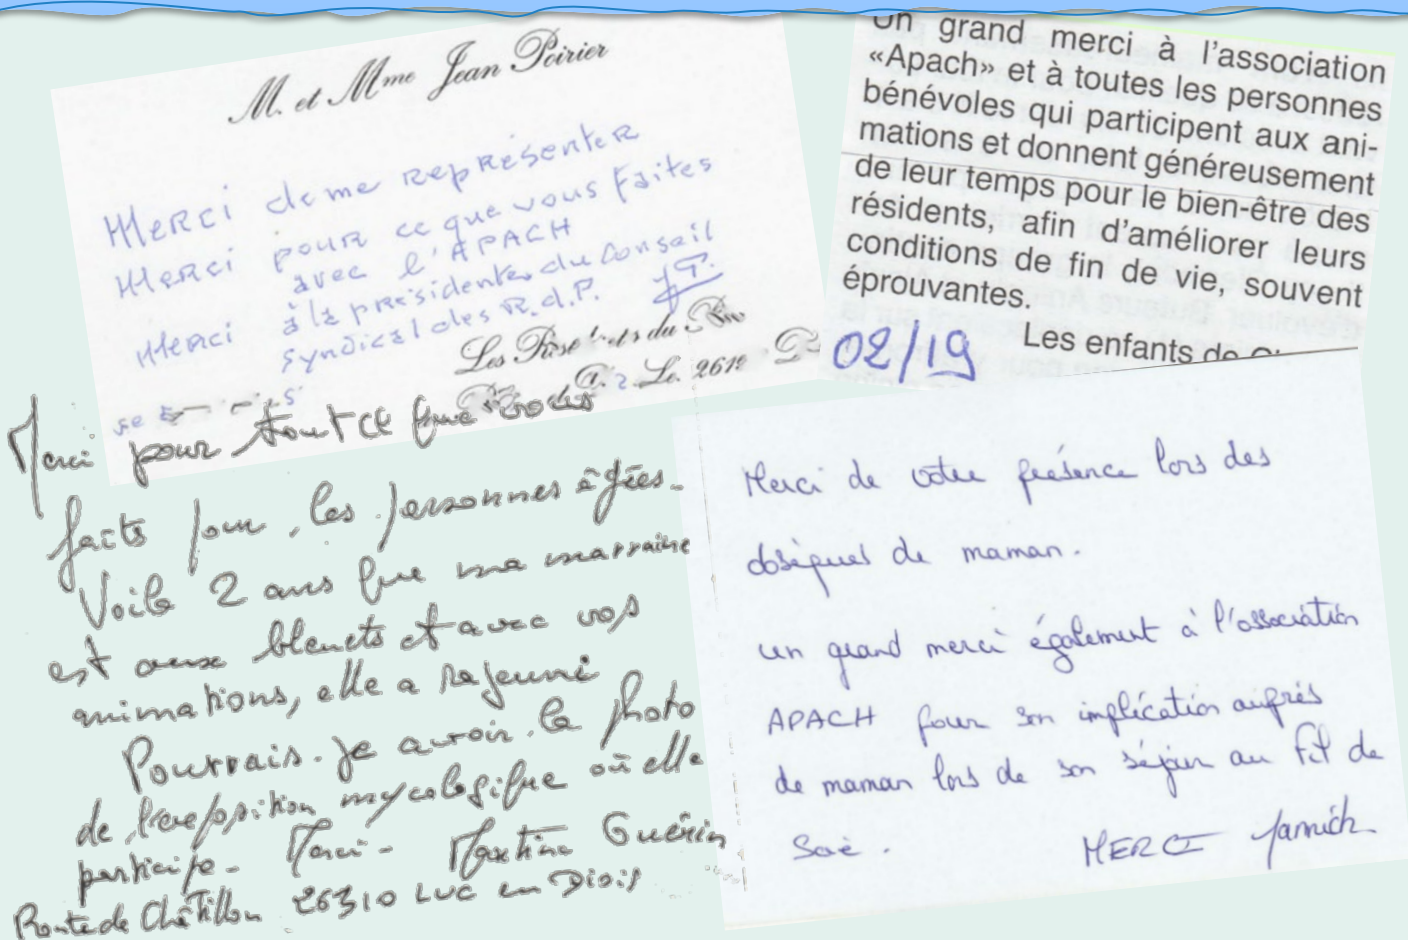 M. et Mme Jean Poirier
Merci de me représenter
Merci pour ce que vous faites
avec l'APACH
Merci à la présidente du Conseil
Syndical des R.d.P. J.P.
Les du
Un grand merci à l'association
«Apach» et à toutes les personnes
bénévoles qui participent aux ani-
mations et donnent généreusement
de leur temps pour le bien-être des
résidents, afin d'améliorer leurs
conditions de fin de vie, souvent
éprouvantes.
Les enfants de
02/19
Merci pour tout ce que vous
faits pour les personnes âgées.
Voilà 2 ans que ma marraine
est aux bleuets et avec vos
animations, elle a rajeuni
Pourrais-je avoir la photo
de l'exposition mycologique où elle
participe - Merci - Martine Guérin
Route de Châtillon 26310 LUC en Diois
Merci de votre présence lors des
obsèques de maman.
un grand merci également à l'association
APACH pour son implication auprès
de maman lors de son séjour au Fil de
Soie.
MERCI Yannick